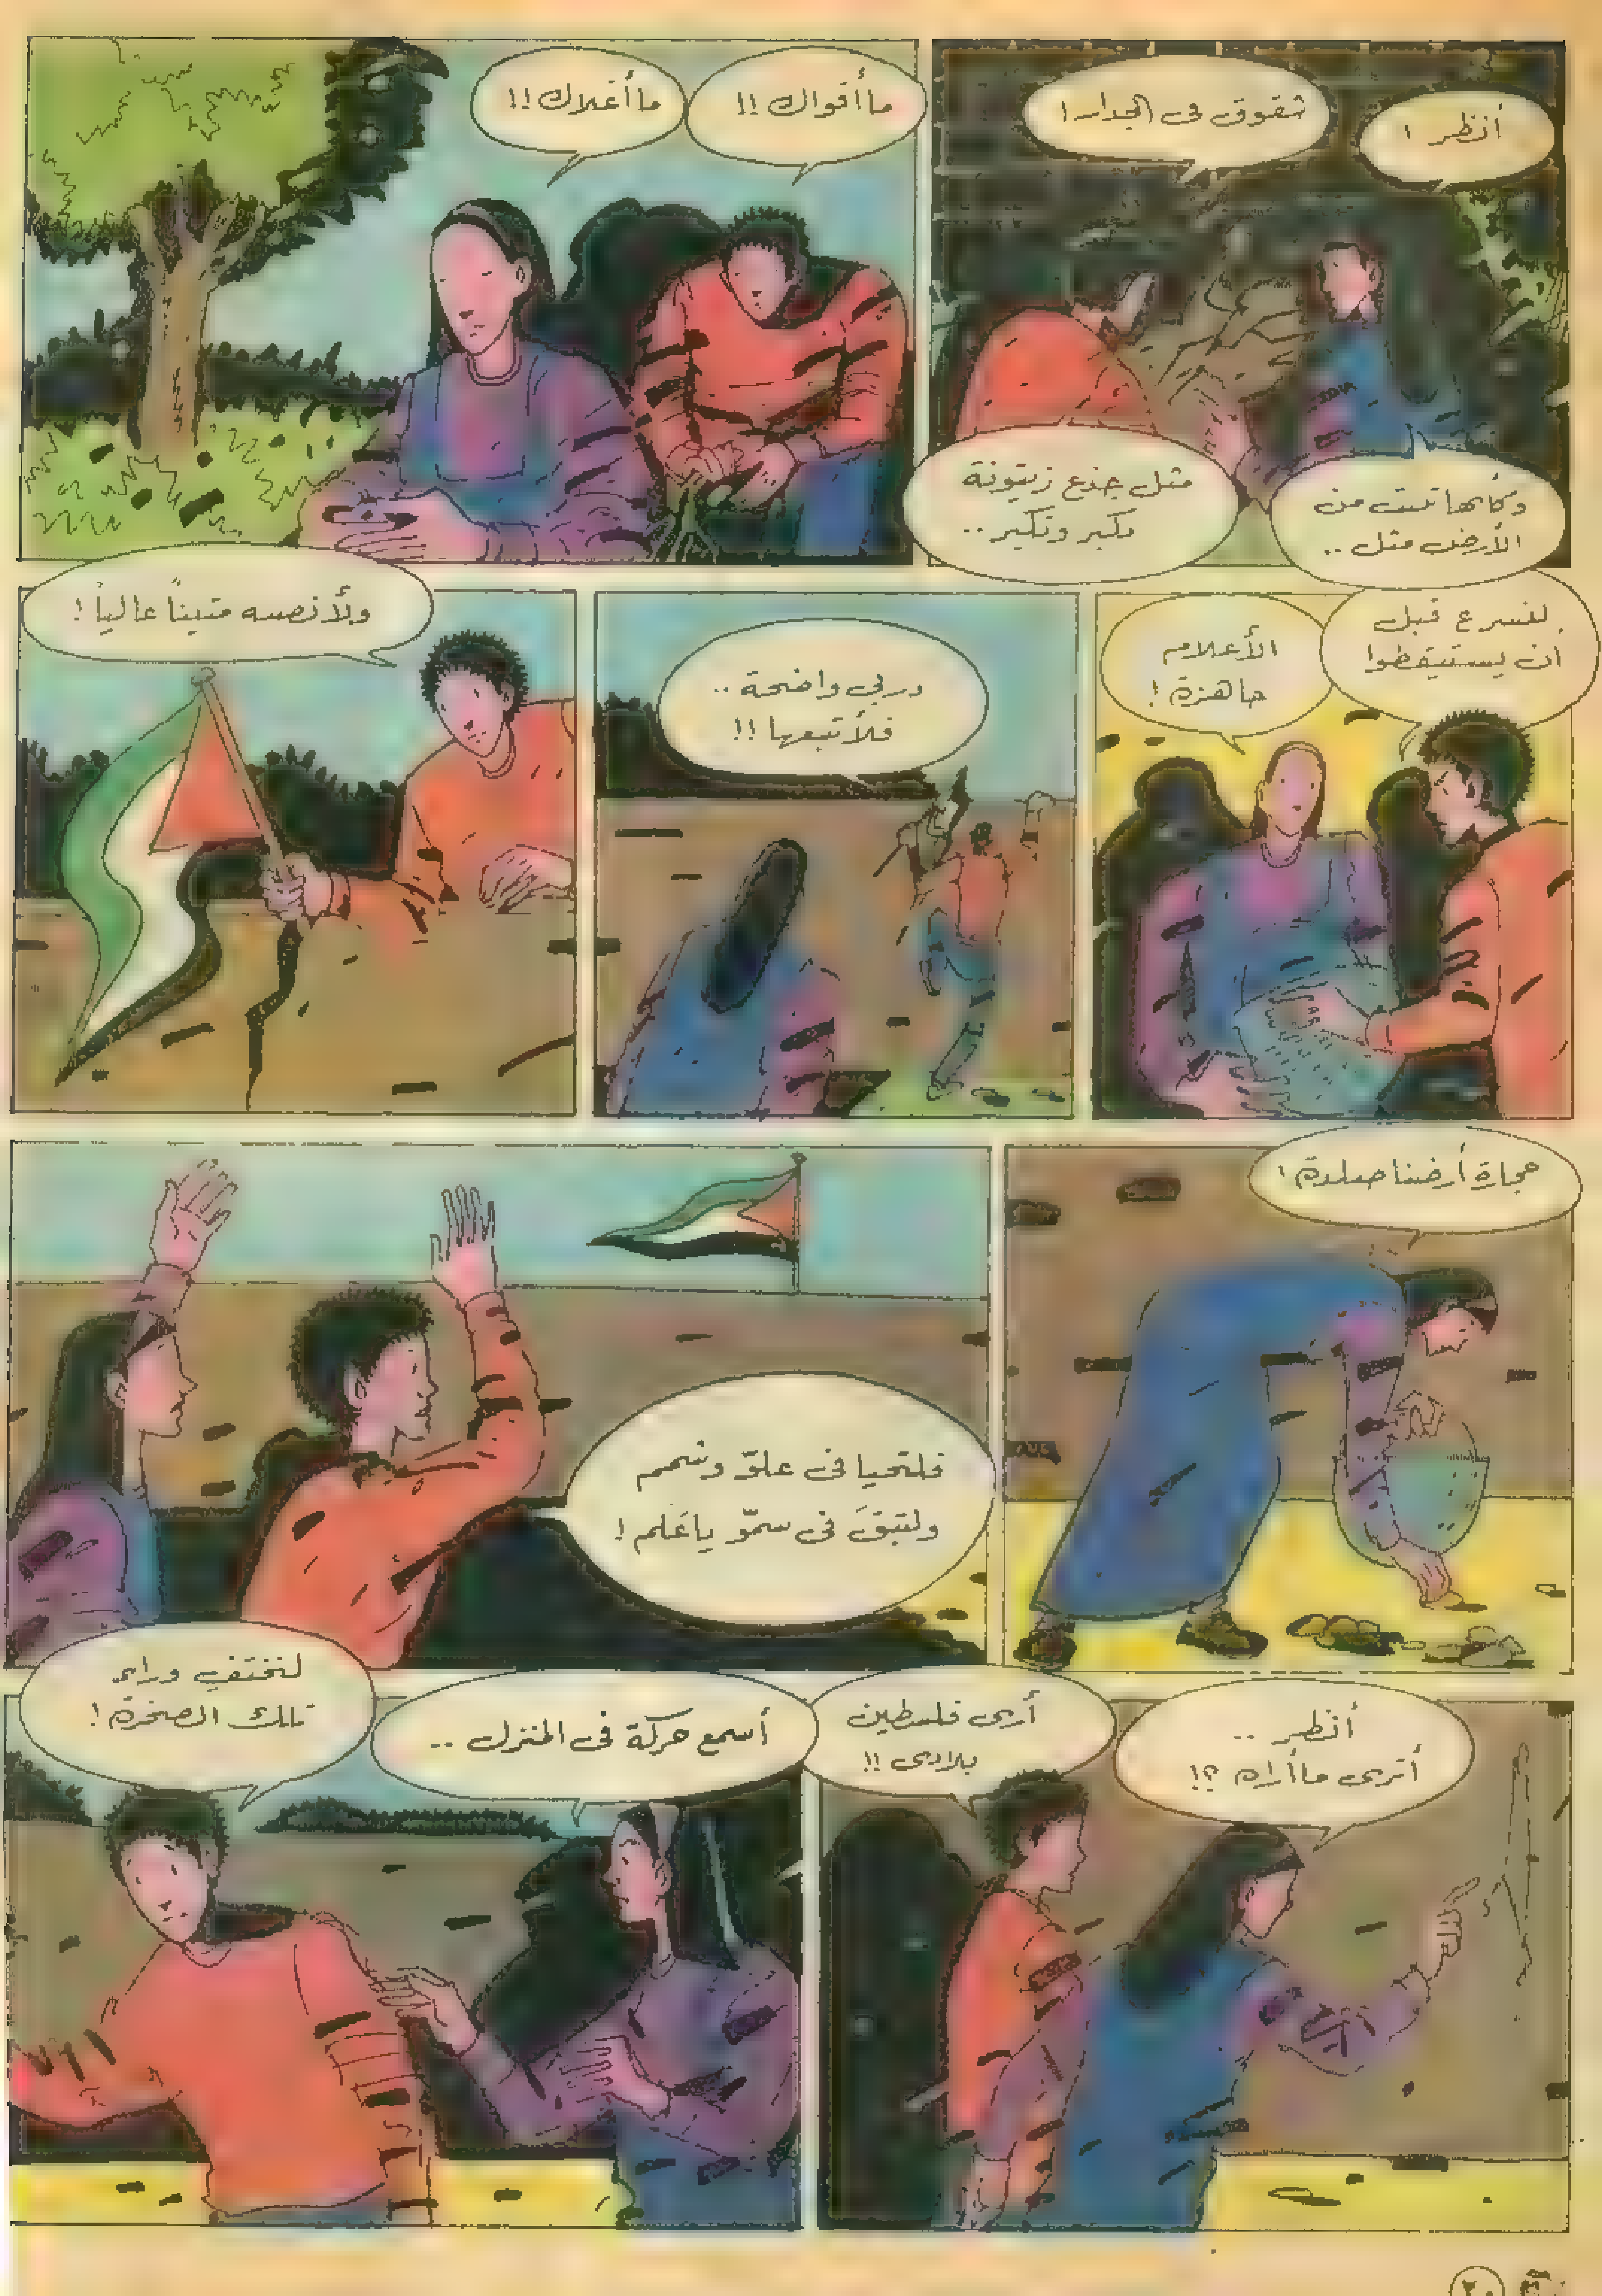 أنظر !
شقوق في الجدار !
وكأنها نمت من
الأرض مثل ..
مثل جذع زيتونة
تكبر وتكبر ..
ما أقواك !!
ما أغلاك !!
لنسرع قبل
ان يستيقظوا
الأعلام
جاهزة !
دربي واضحة ..
فلأتبعها !!
ولأنصبه متيناً عالياً !
حجارة أرضنا صلدة !
فلتحيا في علوّ وشمم
ولتبقَ في سموّ يا عَلم !
أنظر ..
أترى ما أراه ؟!
أرى فلسطين
بلادي !!
أسمع حركة في المنزل ..
لنختفي وراء
تلك الصخرة !
٢٠